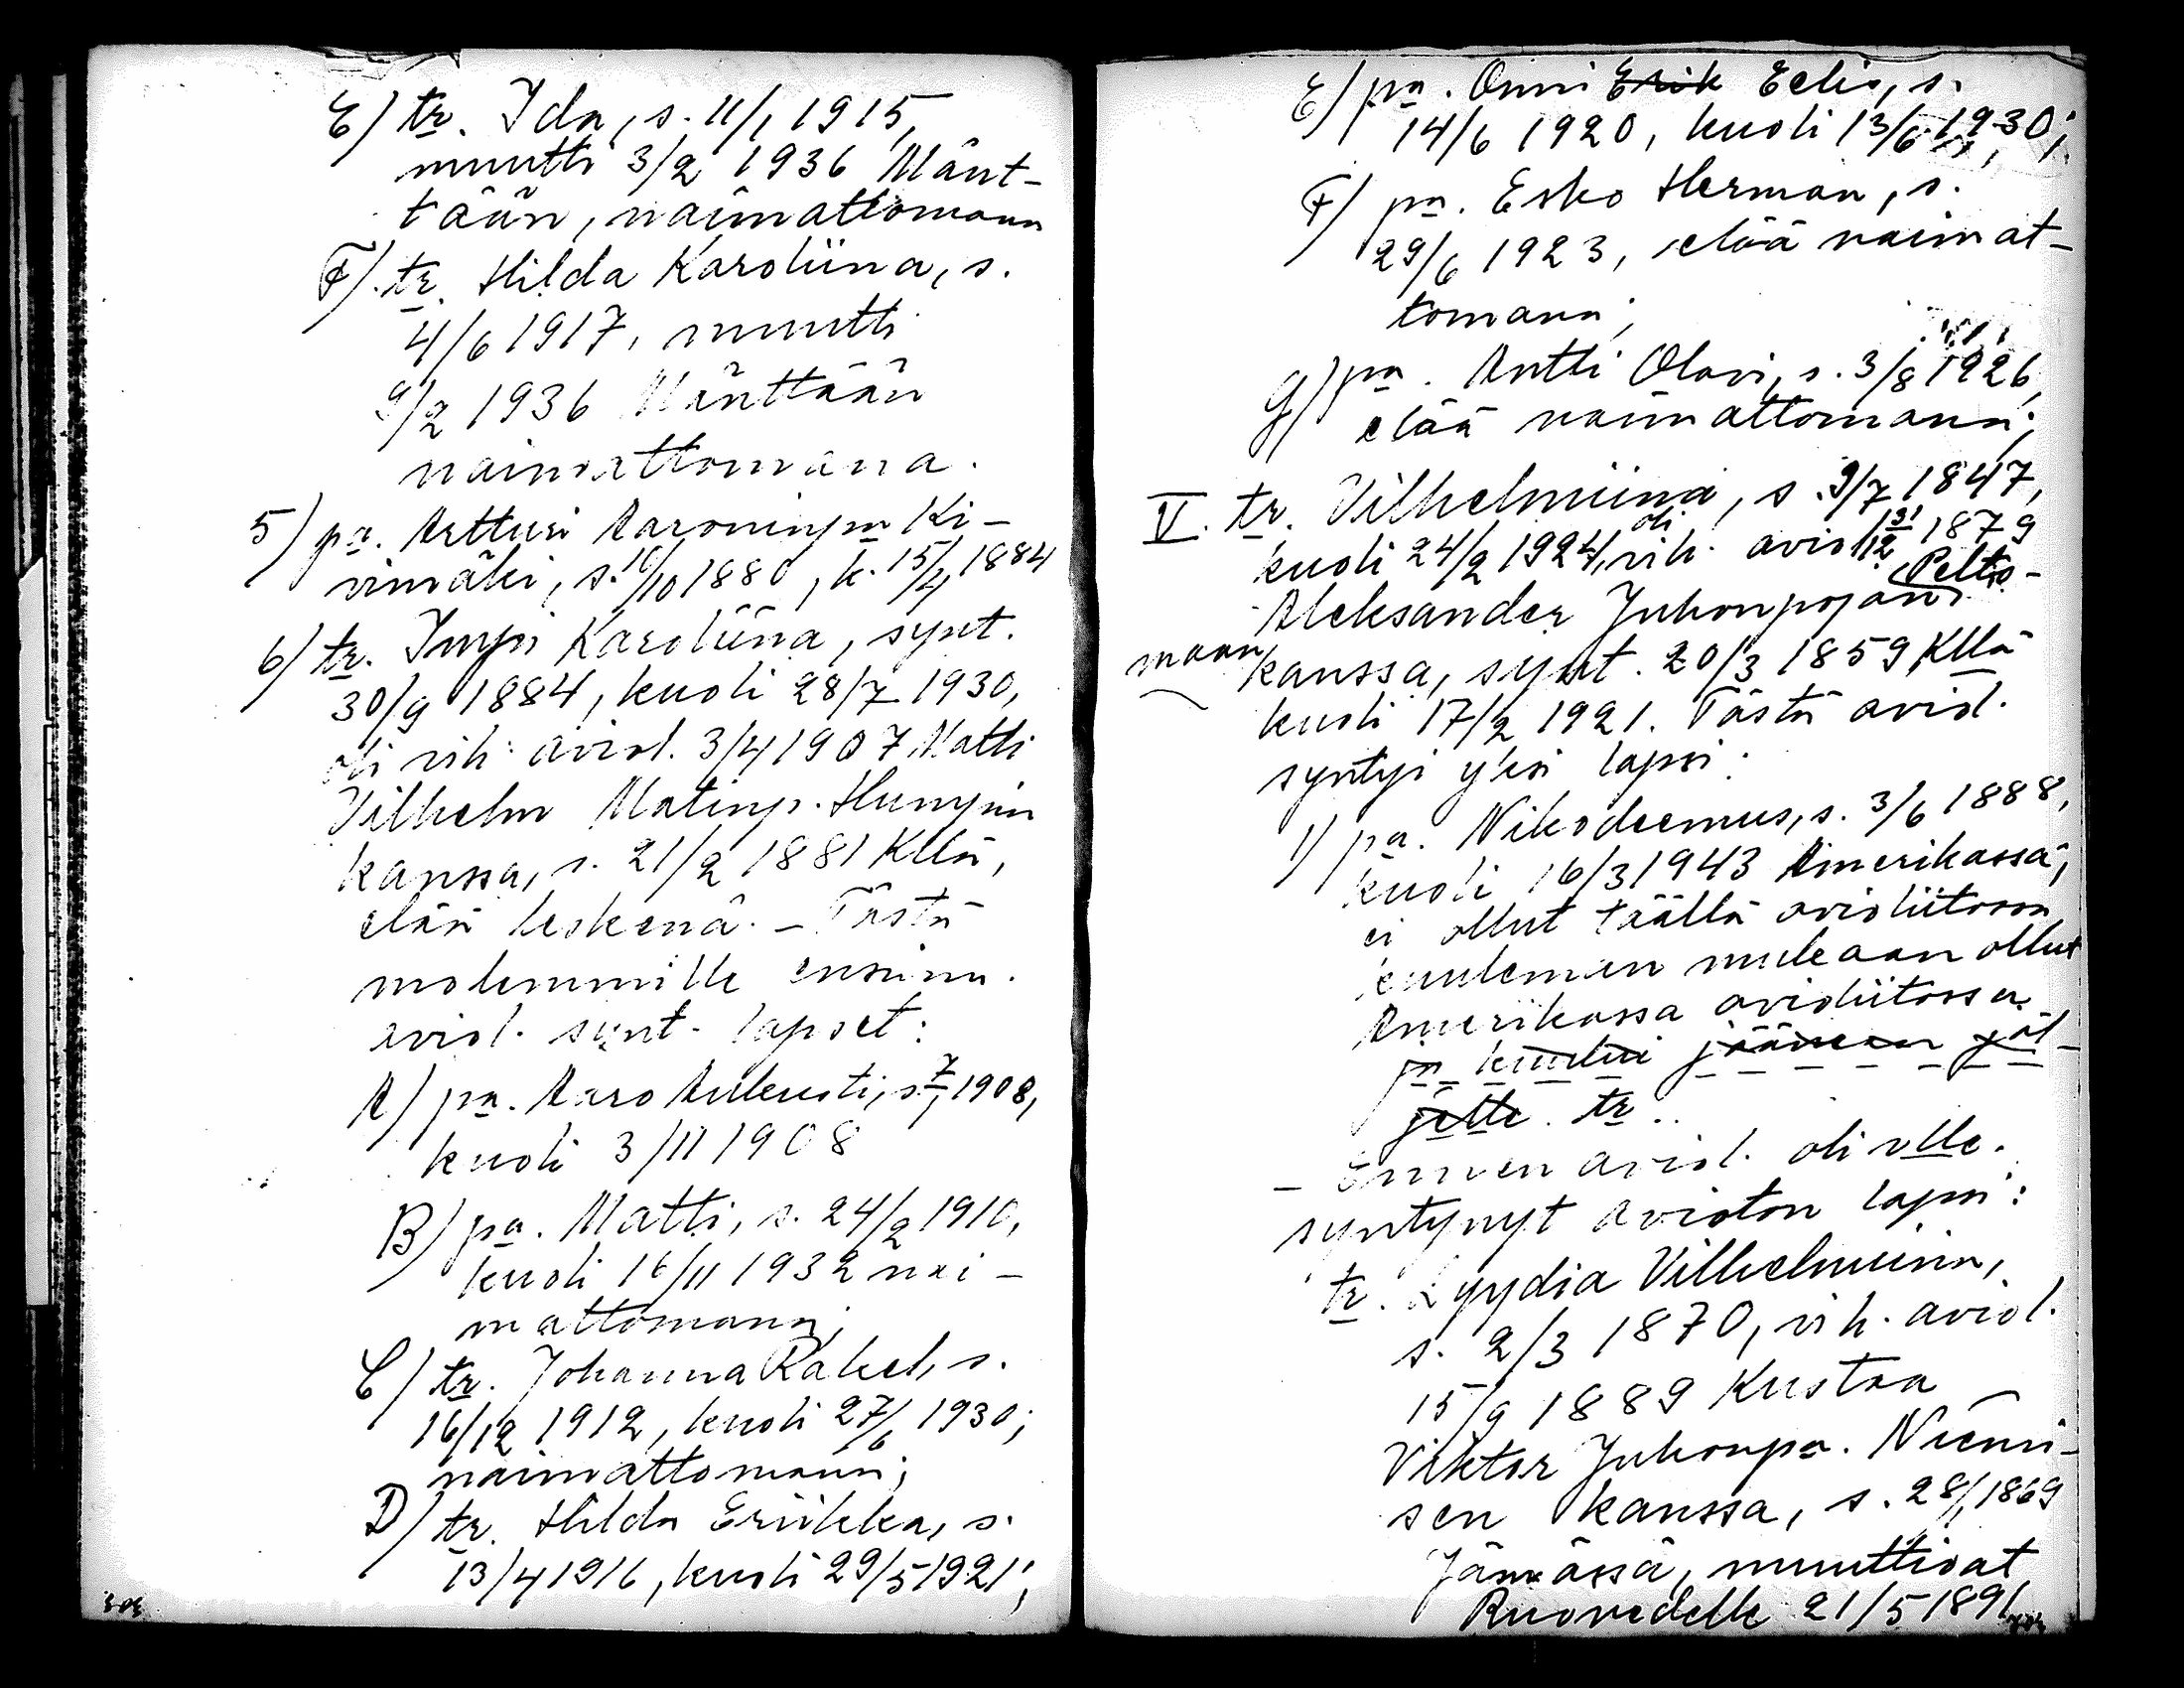 E) tr. Ida, s. 11/1 1915,
muutti 3/2 1936 Mänt-
tään, naimattomana
F) tr. Hilda Karoliina, s.
4/6 1917, muutti
9/2 1936 Mänttään
naimattomana.
5) pa. Artturi Aaroninpa Ki-
vimäki, s. 10/10 1880, k. 15/4 1884
6) tr. Impi Karoliina, synt.
30/9 1884, kuoli 28/7 1930,
oli vih. aviol. 3/4 1907 Matti
Vilhelm Matinp. Humpin
kanssa, s. 21/2 1881 Kllä,
elää leskenä. – Tästä
molemmille ensimm.
aviol. synt. lapset:
A) pa. Aaro Aukusti, s. 7/1 1908,
kuoli 3/11 1908
B) pa. Matti, s. 24/2 1910,
kuoli 16/11 1932 nai-
mattomana;
C) tr. Johanna Rakel, s.
16/12 1912, kuoli 27/6 1930;
naimattomana;
D) tr. Hilda Eriikka, s.
13/4 1916, kuoli 29/5 1921;
303
E) pa. Onni Erik Eelis, s.
14/6 1920, kuoli 13/6 1930;
F) pa. Esko Herman, s.
29/6 1923, elää naimat-
tomana;
G) pa. Antti Olavi, s. 3/8 1926,
elää naimattomana;
V. tr. Vilhelmiina, s. 9/7 1847,
kuoli 24/2 1924, oli vih. aviol. 31/12 1879
Aleksander Juhonpojan Pelto-
maan kanssa, synt. 20/3 1859 Kllä
kuoli 17/2 1921. Tästä aviol.
syntyi yksi lapsi:
1) pa. Nikodeemus, s. 3/6 1888,
kuoli 16/3 1943 Amerikassa,
ei ollut täällä avioliitossa,
kuuleman mukaan ollut
Amerikassa avioliitossa
ja kuului jääneen jäl-
jelle tr..
– Ennen aviol. oli vlle.
syntynyt avioton lapsi:
tr. Lyydia Vilhelmiina,
s. 2/3 1870, vih. aviol.
15/9 1889 Kustaa
Viktor Juhonpa. Niemi-
sen kanssa, s. 28/1 1869
Jämsässä, muuttivat
Ruovedelle 21/5 1891